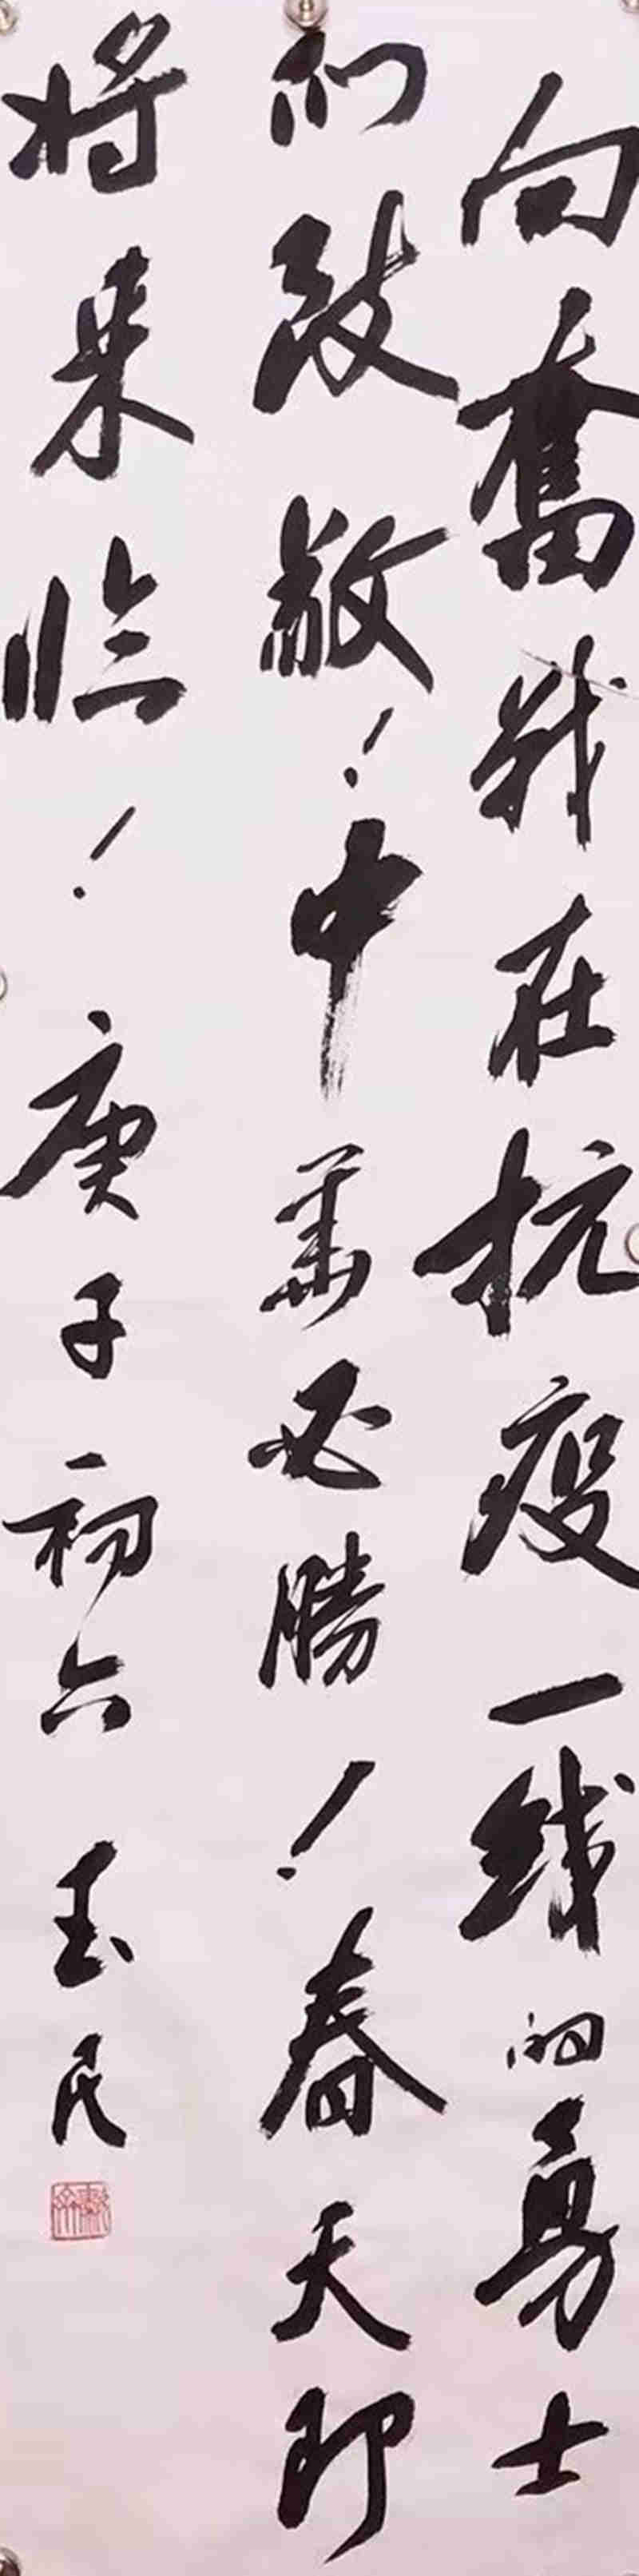 向奮战在抗疫一线的勇士
们致敬!中華必勝!春天即
将来临!庚子初六 玉民